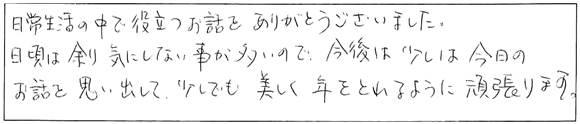 日常生活の中で役立つお話をありがとうございました。
日頃は余り気にしない事が多いので、今後は少しは今日の
お話を思い出して、少しでも美しく年をとれるように頑張ります。